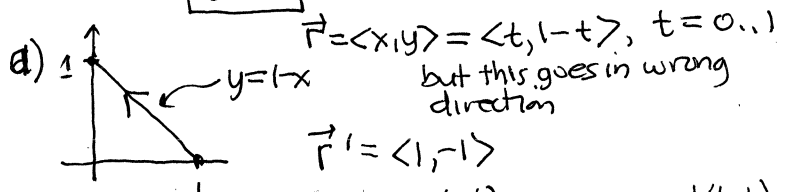 d) 1
y=1-x
r⃗=<x,y>=<t,1-t>, t=0..1
but this goes in wrong
direction
r⃗'=<1,-1>